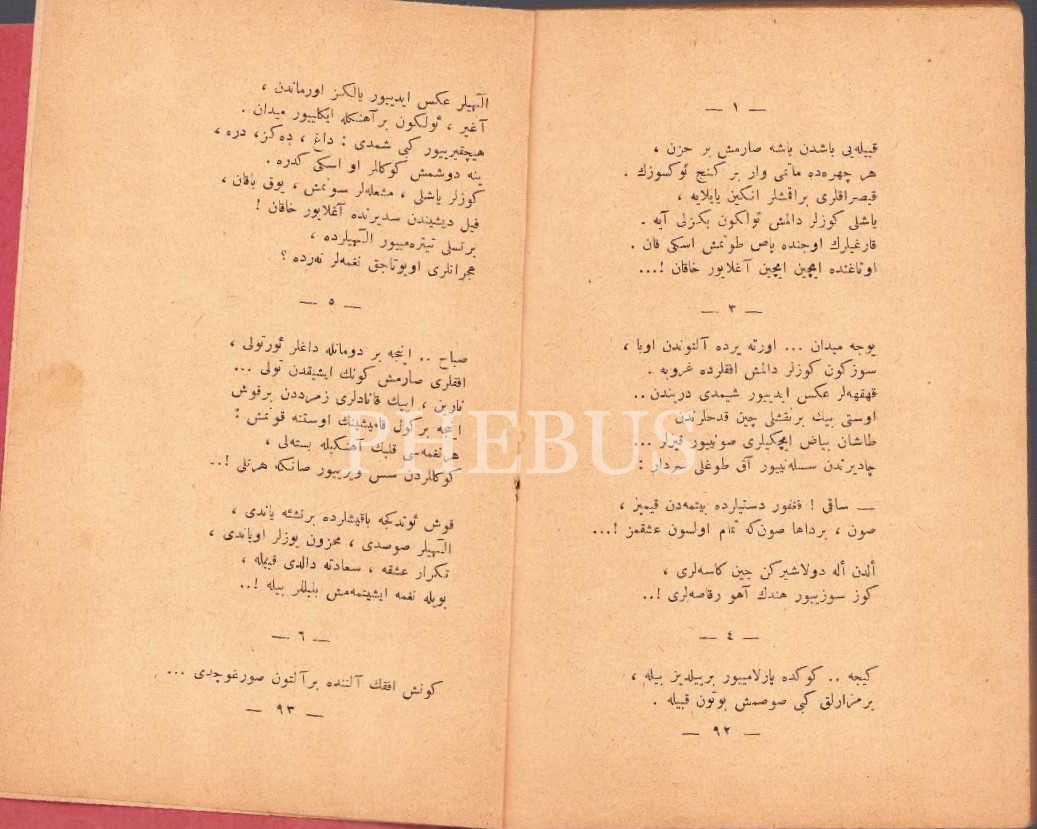 — ١ —
قبیله‌یی باشدن باشه صارمش بر حزن ،
هر چهره‌ده ماتمی وار بر كنج ئوكسوزك .
قیصراقلری براقمشلر انكین یایلایه ،
یاشلی كوزلر دالمش ئولكون بكزلی آیه .
قارغیلرك اوجنده پاص طوتمش اسكی قان .
اوتاغنده ایچین ایچین آغلایور خاقان !...
— ٣ —
یوجه میدان ... اورته یرده آلتوندن اوبا ،
سوزكون كوزلر دالمش افقلرده غروبه .
قهقهه‌لر عكس ایدییور شیمدی دریندن ..
اوستی بیك برنقشلی چین قدحلرندن
طاشان بیاض ایچكیلری صونییور قیزلر ...
چادیرندن سسله‌نییور آق طوغلی سردار :
— ساقی ! فغفور دستیلرده بیتمه‌دن قیمیز ،
صون ، برداها صون‌كه تمام اولسون عشقمز !...
ألدن أله دولاشیركن چین كاسه‌لری ،
كوز سوزییور هندك آهو رقاصه‌لری !..
— ٤ —
كیجه .. كوكده پارلامییور برییلدیز بیله ،
برمزارلق كبی صوصمش بوتون قبیله .
— ٩٢ —
الٓهیلر عكس ایدییور یالكز اورماندن ،
آغیر ، ئولكون برآهنكله ایكلییور میدان .
هیچقیرییور كبی شمدی : داغ ، ده‌كز، دره ،
ینه دوشمش كوكللر او اسكی كدره .
كوزلر یاشلی ، مشعله‌لر سونمش ، یوق باقان ،
فیل دیشیندن سدیرنده آغلایور خاقان !
برتسلی تیتره‌مییور الٓهیلرده ،
هجرانلری اویوتاجق نغمه‌لر نه‌رده ؟
— ٥ —
صباح .. اینجه بر دومانله داغلر ئورتولی ،
افقلری صارمش كونك ایشیقدن تولی ...
نارین ، ایپك قانادلری زمرددن برقوش
اینجه بركول قامیشینك اوستنه قونمش :
هرنغمه‌سی قلبك آهنكیله بسته‌لی ،
كوكللردن سس ویرییور صانكه هرتلی !..
قوش ئوتدكجه باقیشلرده برنشئه یاندی ،
الٓهیلر صوصدی ، محزون یوزلر اویاندی ،
تكرار عشقه ، سعادته دالدی قبیله ،
بویله نغمه ایشیتمه‌مش بلبللر بیله !..
— ٦ —
كونش افقك آلننده برآلتون صورغوچدی ...
— ٩٣ —
PHEBUS